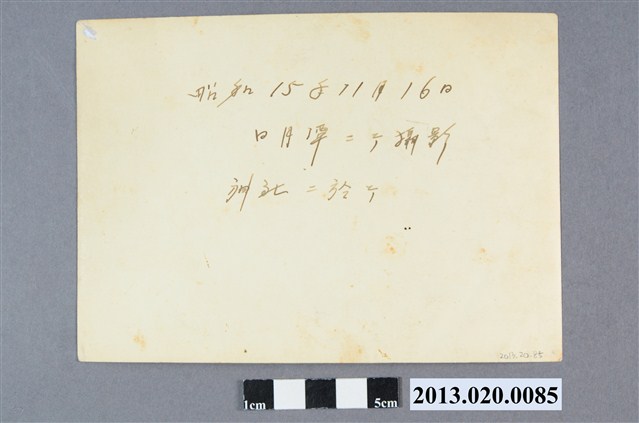 昭和15年11月16日
日月潭ニテ撮影
神社ニ於テ
2013.20.85
1cm 5cm
2013.020.0085